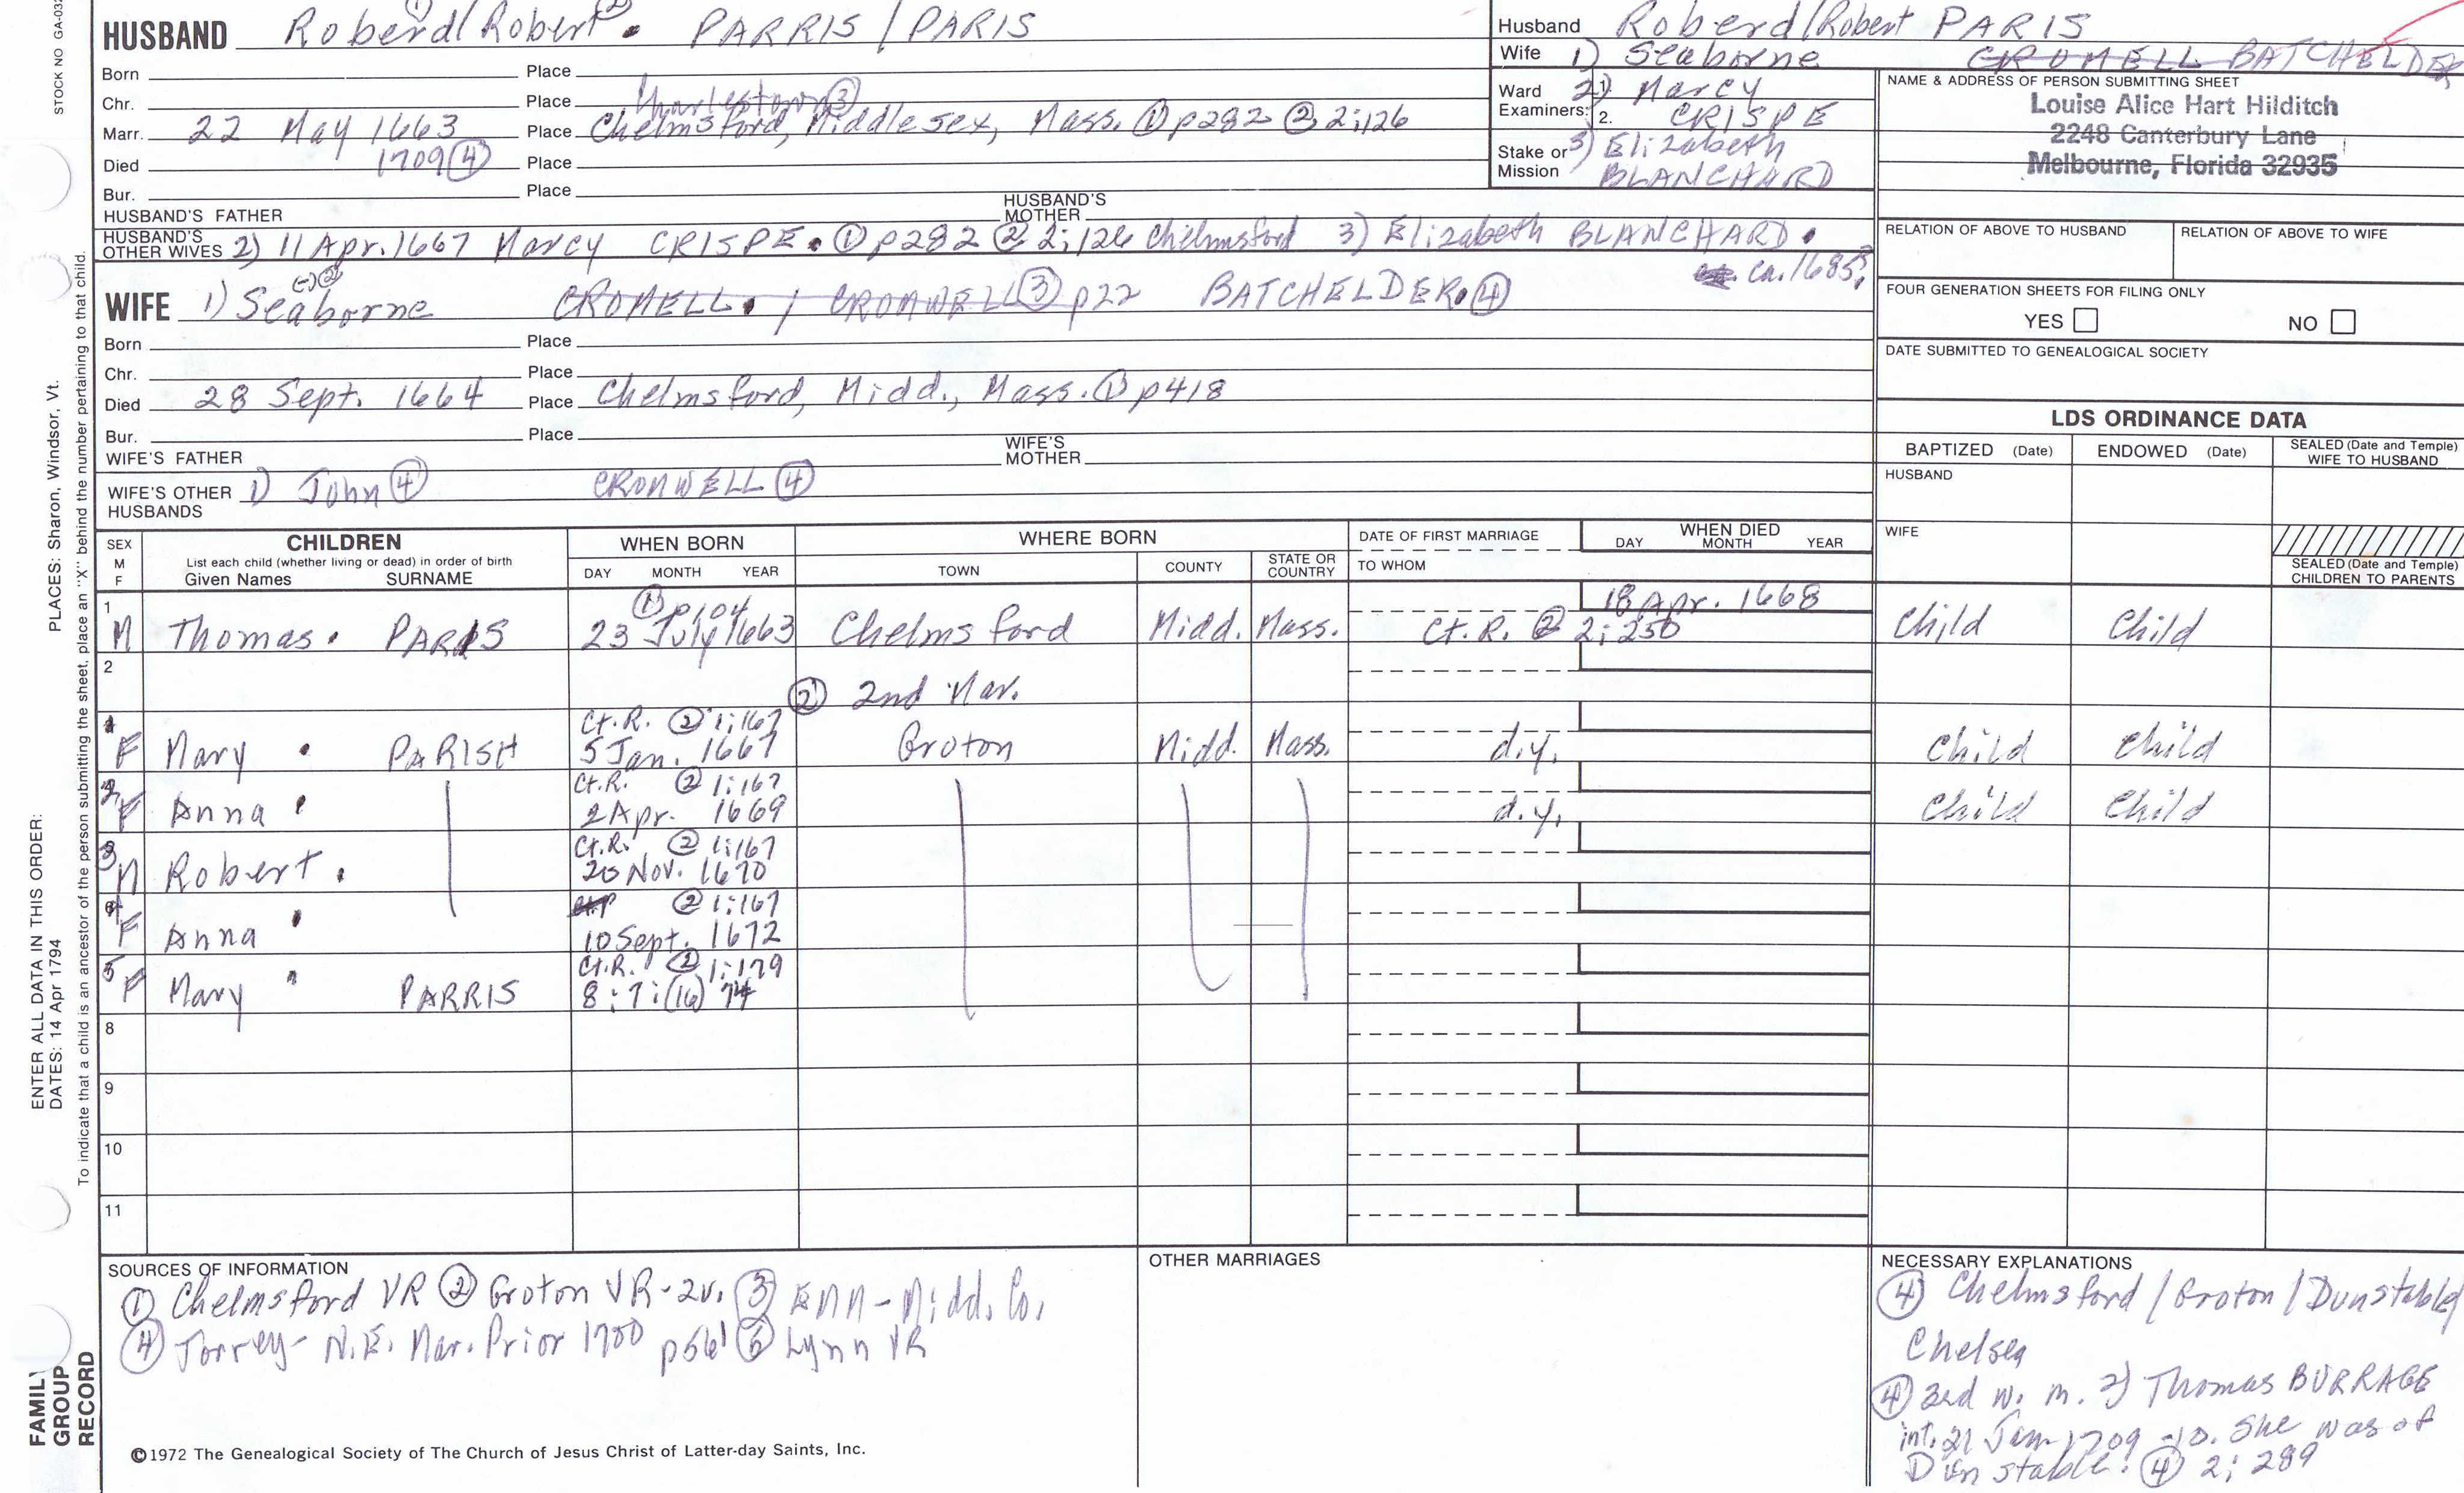 STOCK NO GA-032
HUSBAND Roberd/Robert. PARRIS / PARIS
① ②
Born Place
Chr. Place Charlestown ③
Marr. 22 May 1663 Place Chelmsford, Middlesex, Mass. ① p282 ② 2;126
Died 1709 ④ Place
Bur. Place
HUSBAND'S FATHER HUSBAND'S MOTHER
HUSBAND'S OTHER WIVES 2) 11 Apr. 1667 Marcy CRISPE. ① p282 ② 2;126 Chelmsford 3) Elizabeth BLANCHARD.
ca. 1685?
WIFE 1) Seaborne CROMELL. / CROMWELL ③ p22 BATCHELDER. ④
Born Place
Chr. Place
Died 28 Sept. 1664 Place Chelmsford, Midd., Mass. ① p418
Bur. Place
WIFE'S FATHER WIFE'S MOTHER
WIFE'S OTHER HUSBANDS 1) John ④ CROMWELL ④
Husband Roberd/Robert PARIS
Wife 1) Seaborne CROMELL BATCHELDER
Ward Examiners: 1. 2) Marcy
2. CRISPE
Stake or Mission 3) Elizabeth
BLANCHARD
NAME & ADDRESS OF PERSON SUBMITTING SHEET
Louise Alice Hart Hilditch
2248 Canterbury Lane
Melbourne, Florida 32935
RELATION OF ABOVE TO HUSBAND RELATION OF ABOVE TO WIFE
FOUR GENERATION SHEETS FOR FILING ONLY
YES NO
DATE SUBMITTED TO GENEALOGICAL SOCIETY
LDS ORDINANCE DATA
BAPTIZED (Date) ENDOWED (Date) SEALED (Date and Temple) WIFE TO HUSBAND
HUSBAND
WIFE
SEALED (Date and Temple) CHILDREN TO PARENTS
SEX M F CHILDREN WHEN BORN WHERE BORN DATE OF FIRST MARRIAGE WHEN DIED
List each child (whether living or dead) in order of birth
Given Names SURNAME DAY MONTH YEAR TOWN COUNTY STATE OR COUNTRY TO WHOM DAY MONTH YEAR
① p104 18 Apr. 1668
1 M Thomas. PARIS 23 July 1663 Chelmsford Midd. Mass. Ct. R. ② 2;250 Child Child
2
② 2nd Mar.
Ct. R. ② 1;167
F Mary . PARISH 5 Jan. 1667 Groton Midd. Mass. d.y. Child Child
Ct. R. ② 1;167
2 F Anna 2 Apr. 1669 d.y. Child Child
Ct. R. ② 1;167
3 M Robert. 20 Nov. 1670
② 1;167
4 F Anna 10 Sept. 1672
Ct. R. ② 1;179
5 F Mary PARRIS 8;7;(16)74
8
9
10
11
SOURCES OF INFORMATION
① Chelmsford VR ② Groton VR-2v. ③ Midd. Co.
④ Torrey- N.E. Mar. Prior 1700 p561 ⑤ Lynn VR
©1972 The Genealogical Society of The Church of Jesus Christ of Latter-day Saints, Inc.
OTHER MARRIAGES
NECESSARY EXPLANATIONS
④ Chelmsford / Groton / Dunstable/
Chelsea
④ 3rd w. m. 2) Thomas BURRAGE
int. 21 Jan 1709-10. She was of
Dunstable. ④ 2; 289
FAMILY GROUP RECORD
ENTER ALL DATA IN THIS ORDER:
DATES: 14 Apr 1794
PLACES: Sharon, Windsor, Vt.
To indicate that a child is an ancestor of the person submitting the sheet, place an "X" behind the number pertaining to that child.